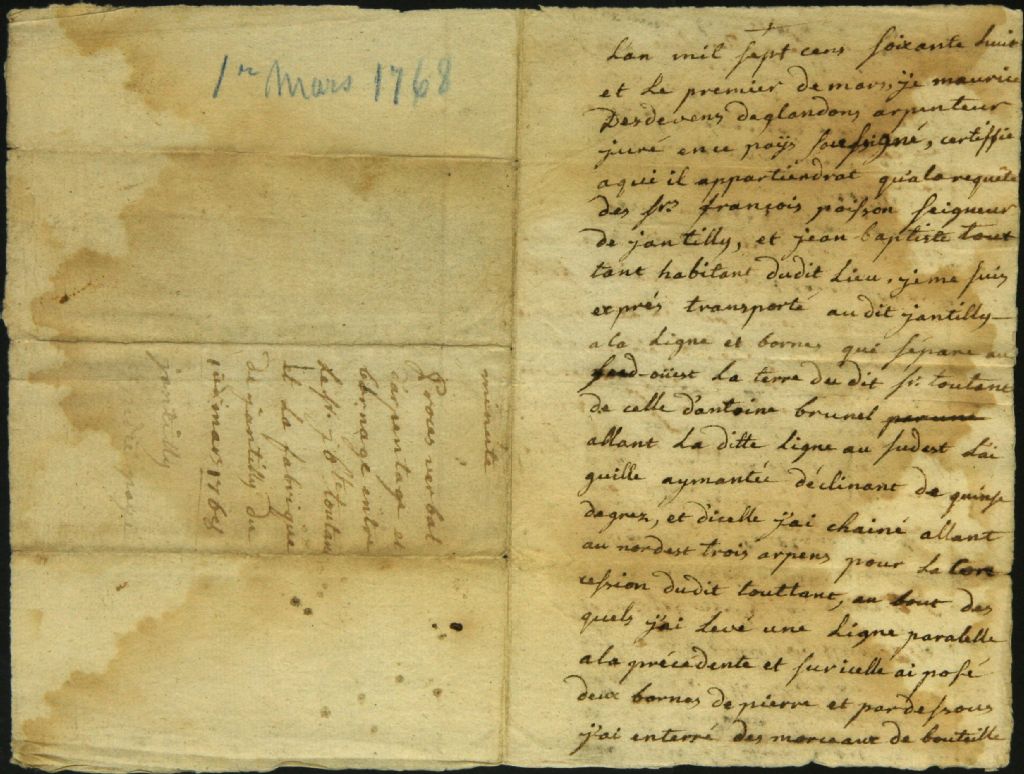 1er Mars 1768
minute
Proces verbal
d'arpentage et
bornage entre
le sr. j. bte toutan
et La fabrique
de jantilly du
1er mars 1768
jantilly
+
L'an mil sept cens soixante huit
et le premier de mars, je maurice
Desdevens deglandons arpenteur
juré ence païs soussigné, certiffie
aqui il appartiendrat qu'ala requête
des srs. françois poisson seigneur
de jantilly, et jean baptiste tout
tant habitant dudit Lieu, jeme suis
exprés transporté audit jantilly
ala Ligne et bornes qui sépare au
sud-oüest La terre du dit sr. toutant
de celle d'antoine brunel par une
allant La ditte Ligne au sudest L'ai
guille aymantée déclinant de quinse
degrez, et dicelle j'ai chainé allant
au nordest trois arpens pour La con
cession dudit touttant, au bout des
quels j'ai Levé une Ligne paralelle
ala précedente et suricelle ai posé
deux bornes de pierre et pardessous
j'ai enterré des morceaux de bouteille